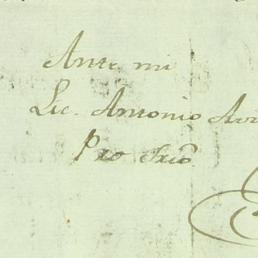 Ante mi
Lic. Antonio
Pro Srio